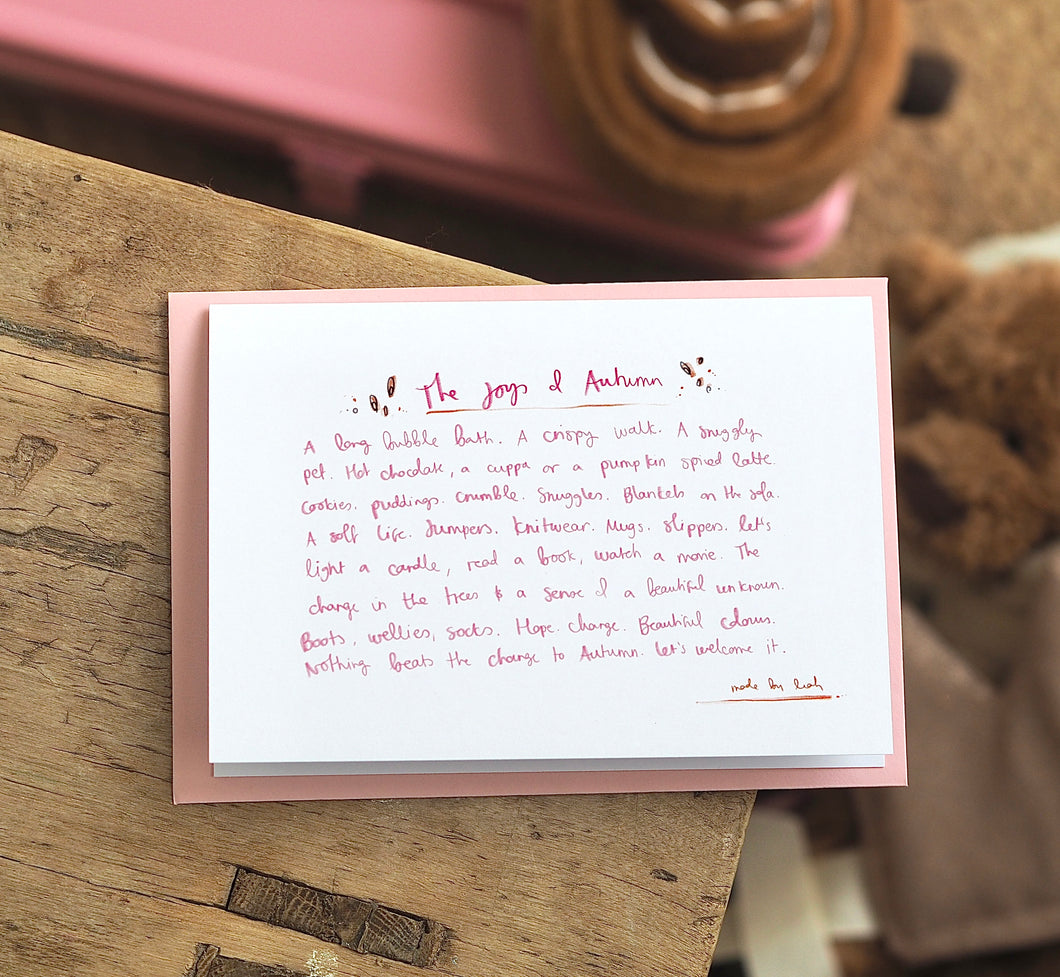 The Joys of Autumn
A long bubble bath. A crispy walk. A snuggly
pet. Hot chocolate, a cuppa or a pumpkin spiced latte.
Cookies. puddings. crumble. Snuggles. Blankets on the sofa.
A soft life. Jumpers. Knitwear. Mugs. slippers. let's
light a candle, read a book, watch a movie. The
change in the trees & a sense of a beautiful unknown.
Boots, wellies, socks. Hope. change. Beautiful colours.
Nothing beats the change to Autumn. let's welcome it.
made by leah